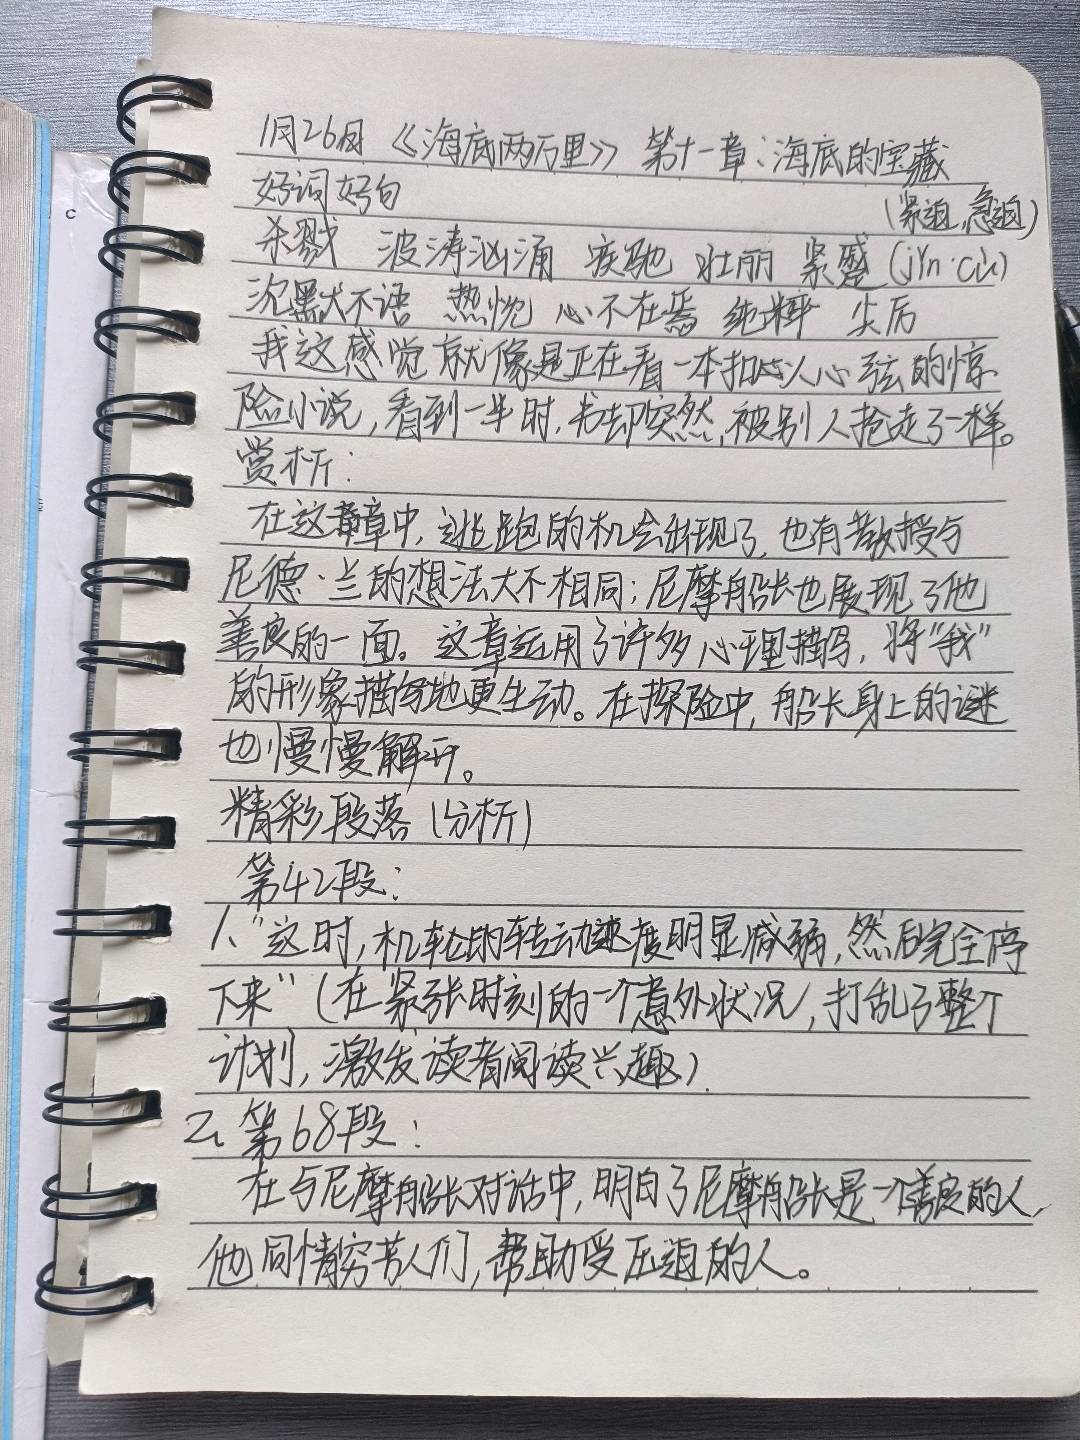 1月26日 《海底两万里》 第十一章:海底的宝藏
好词好句
(紧迫,急迫)
杀戮 波涛汹涌 疾驰 壮丽 紧蹙(jǐn·cù)
沉默不语 热忱 心不在焉 纯粹 尖厉
我这感觉就像是正在看一本扣人心弦的惊
险小说,看到一半时,书却突然,被别人抢走了一样。
赏析:
在这章中,逃跑的机会出现了,也有教授与
尼德·兰的想法大不相同;尼摩船长也展现了他
善良的一面。这章运用了许多心理描写,将“我”
的形象描写地更生动。在探险中,船长身上的谜
也慢慢解开。
精彩段落(分析)
第42段:
1、“这时,机轮的转动速度明显减弱,然后完全停
下来”(在紧张时刻的一个意外状况,打乱了整个
计划,激发读者阅读兴趣).
2、第68段:
在与尼摩船长对话中,明白了尼摩船长是一个善良的人,
他同情穷苦人们,帮助受压迫的人。